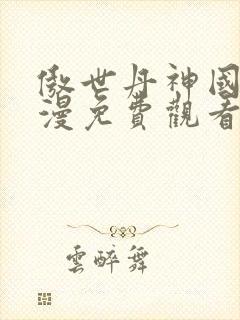 傲世丹神國
漫免費觀看
雲醉舞